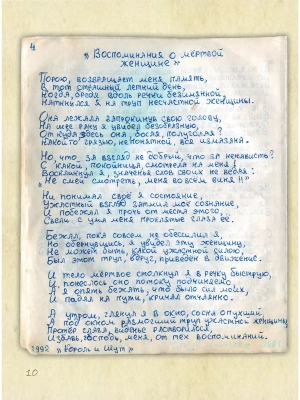 4
"Воспоминания о мёртвой
женщине"
Порою, возвращает меня память,
В тот страшный летний день,
Когда, бредя вдоль речки безымянной,
Наткнулся я на труп несчастной женщины.
Она лежала запрокинув свою голову,
На шее рану я увидел безобразную,
Откуда здесь она, босая, полуголая?
Какой-то грязью, непонятной, вся измазана.
Но, что за взгляд не добрый, что за ненависть?
С какой, покойница, смотрела на меня!
Воскликнул я, значенья слов своих не ведая:
"Не смей смотреть, меня во всём виня!!"
Ни понимал своё я состояние,
Ужастный взгляд затмил моё сознание,
И побежал я прочь от места этого,
Свели с ума меня проклятые глаза её.
Бежал, пока совсем не обессилил я,
Но обернувшись, я увидел эту женщину,
Не может быть, какой ужастной силою
Был этот труп, вдруг, приведён в движение.
И тело мёртвое столкнул я в речку быструю,
И, понеслось оно потоку подчиняясь
А я опять бежать, что было сил моих,
И падал на пути, кричал отчаянно.
А утром, глянул я в окно, со сна опухший
А под окном разлогший труп ужастной женщины
Протёр глаза, виденье растворилося,
Избавь, господь, меня, от тех воспоминаний.
1992 "Король и Шут"
10